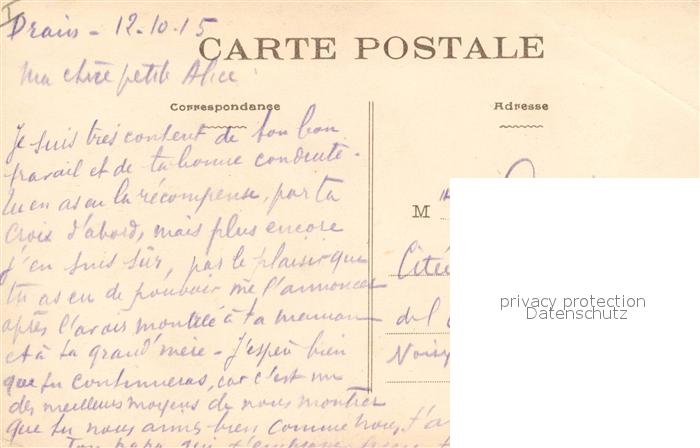 Drain - 12-10-15
CARTE POSTALE
Ma chère petite Alice
Correspondance
Adresse
Je suis très content de ton bon
travail et de ta bonne conduite.
tu en as eu la récompense, par ta
croix d'abord, mais plus encore
j'en suis sûr, par le plaisir que
tu as eu de pouvoir me l'annoncer
après l'avoir montrée à ta maman
et à ta grand'mère - J'espère bien
que tu continueras, car c'est un
des meilleurs moyens de nous montrer
que tu nous aimes bien comme nous t'a
Ton papa qui t'embrasse
M
Citée
del
Noisy
privacy protection
Datenschutz